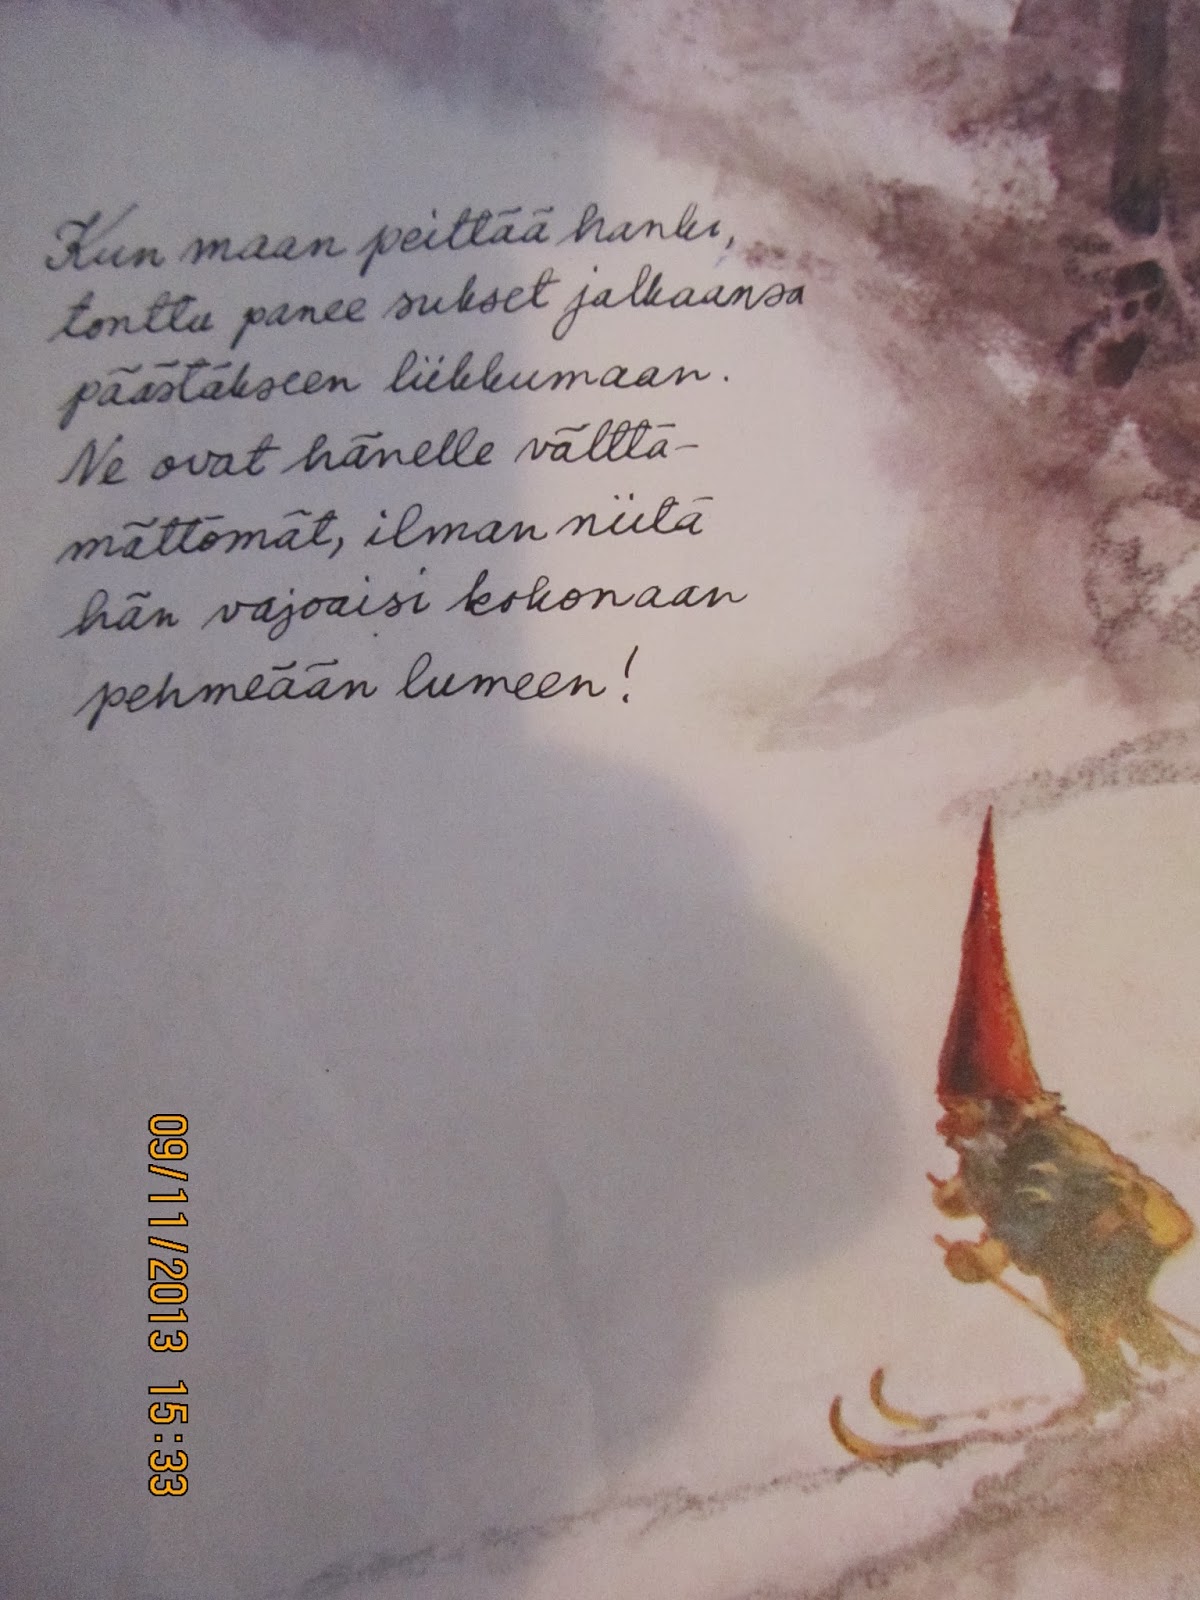 Kun maan peittää hanki,
tonttu panee sukset jalkaansa
päästäkseen liikkumaan.
Ne ovat hänelle välttä-
mättömät, ilman niitä
hän vajoaisi kokonaan
pehmeään lumeen!
09/11/2013 15:33